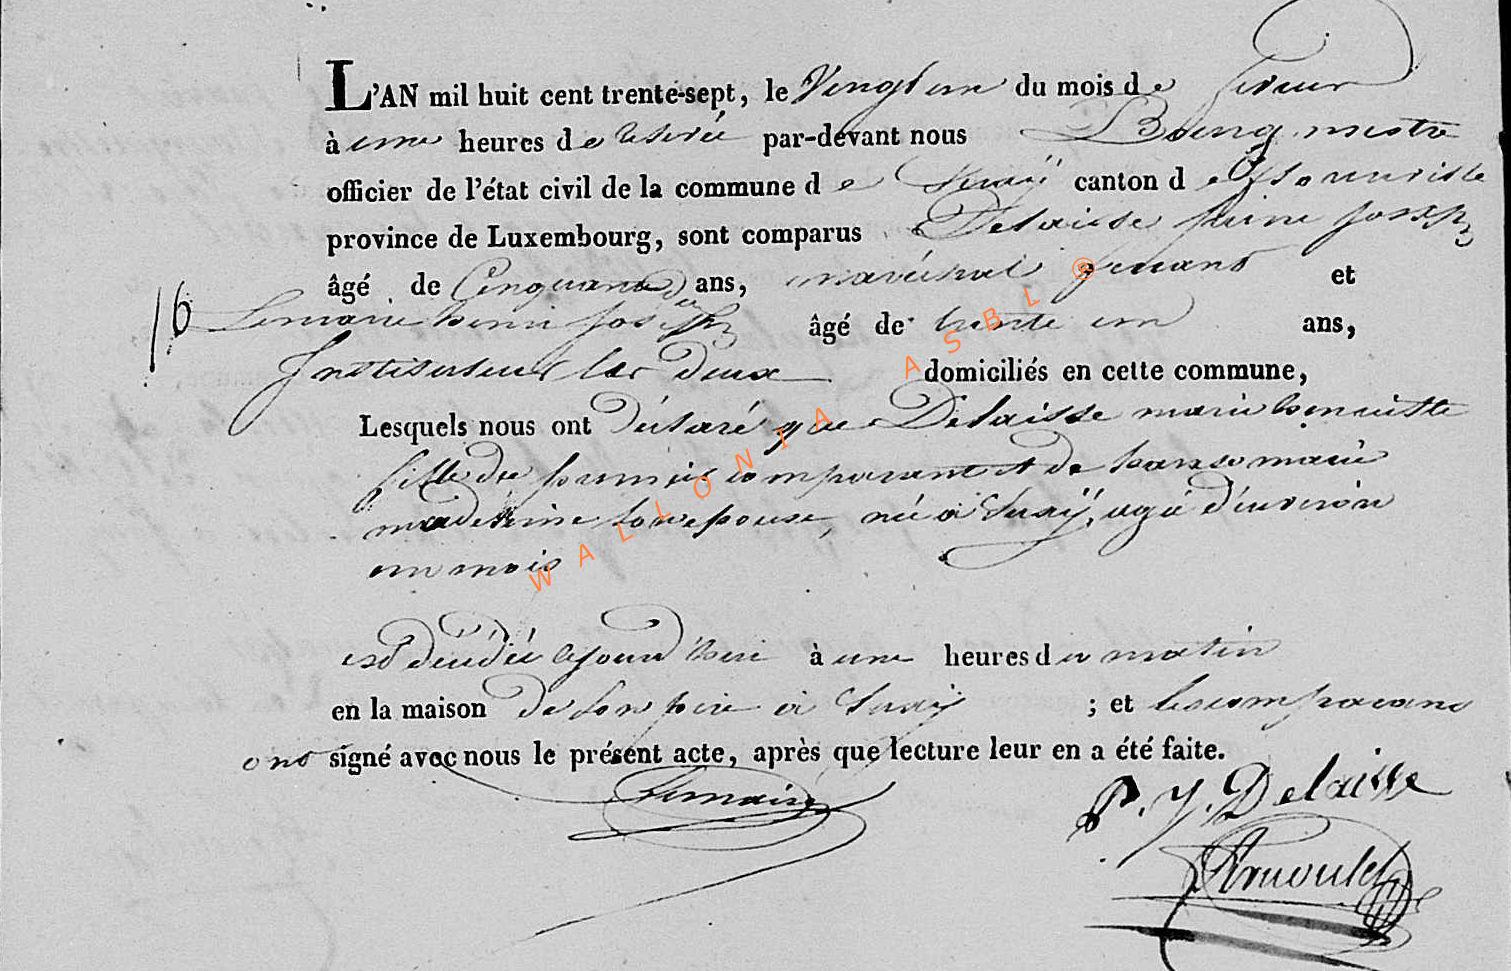 L'AN mil huit cent trente-sept, le Vingt un du mois de fevrier
à une heures de relevée par-devant nous Bourgmestre
officier de l'état civil de la commune de Suxÿ canton d
province de Luxembourg, sont comparus Delaisse pierre joseph
âgé de Cinquante ans, maréchal ferrant et
16 Lemaire henri joseph âgé de trente un ans,
Instituteur les deux domiciliés en cette commune,
Lesquels nous ont déclaré que Delaisse marie henriette
fille du premier comparant et de marie
son epouse, née à Suxÿ, agée d'environ
un mois
est décédée cejourd'hui à une heures du matin
en la maison de son père à Suxÿ ; et les comparans
ont signé avec nous le présent acte, après que lecture leur en a été faite.
Lemaire P. J. Delaisse
Arnould
WALLONIA ASBL ®